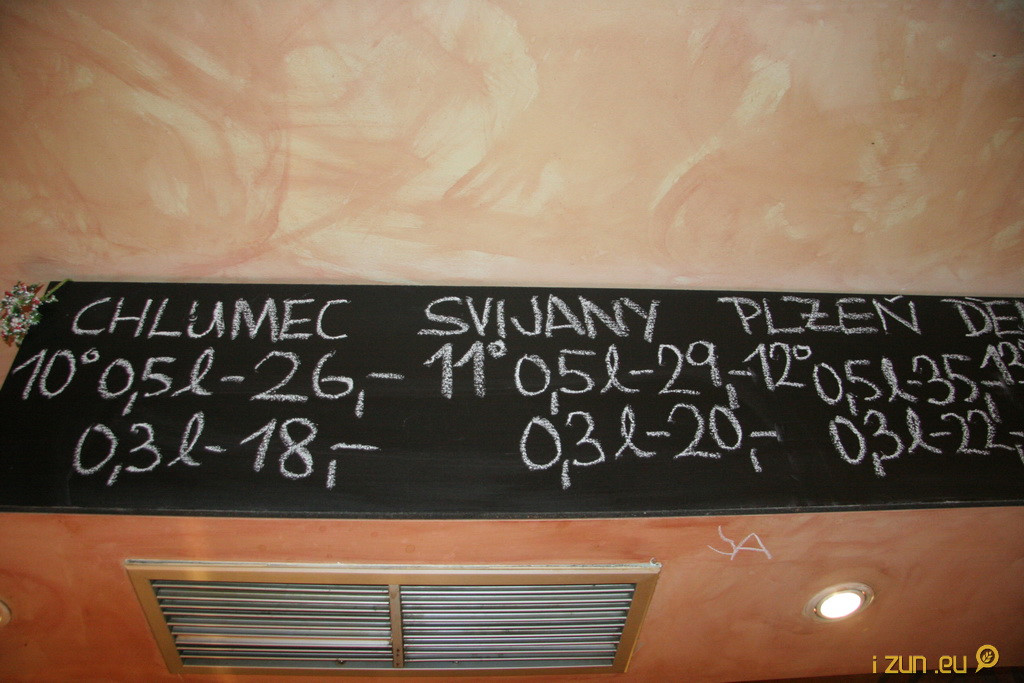 CHLUMEC SVIJANY PLZEŇ
10° 0,5l-26,- 11° 0,5l-29,- 12° 0,5l-35,- 13°
0,3l-18,- 0,3l-20,- 0,3l-22,-
i zun.eu